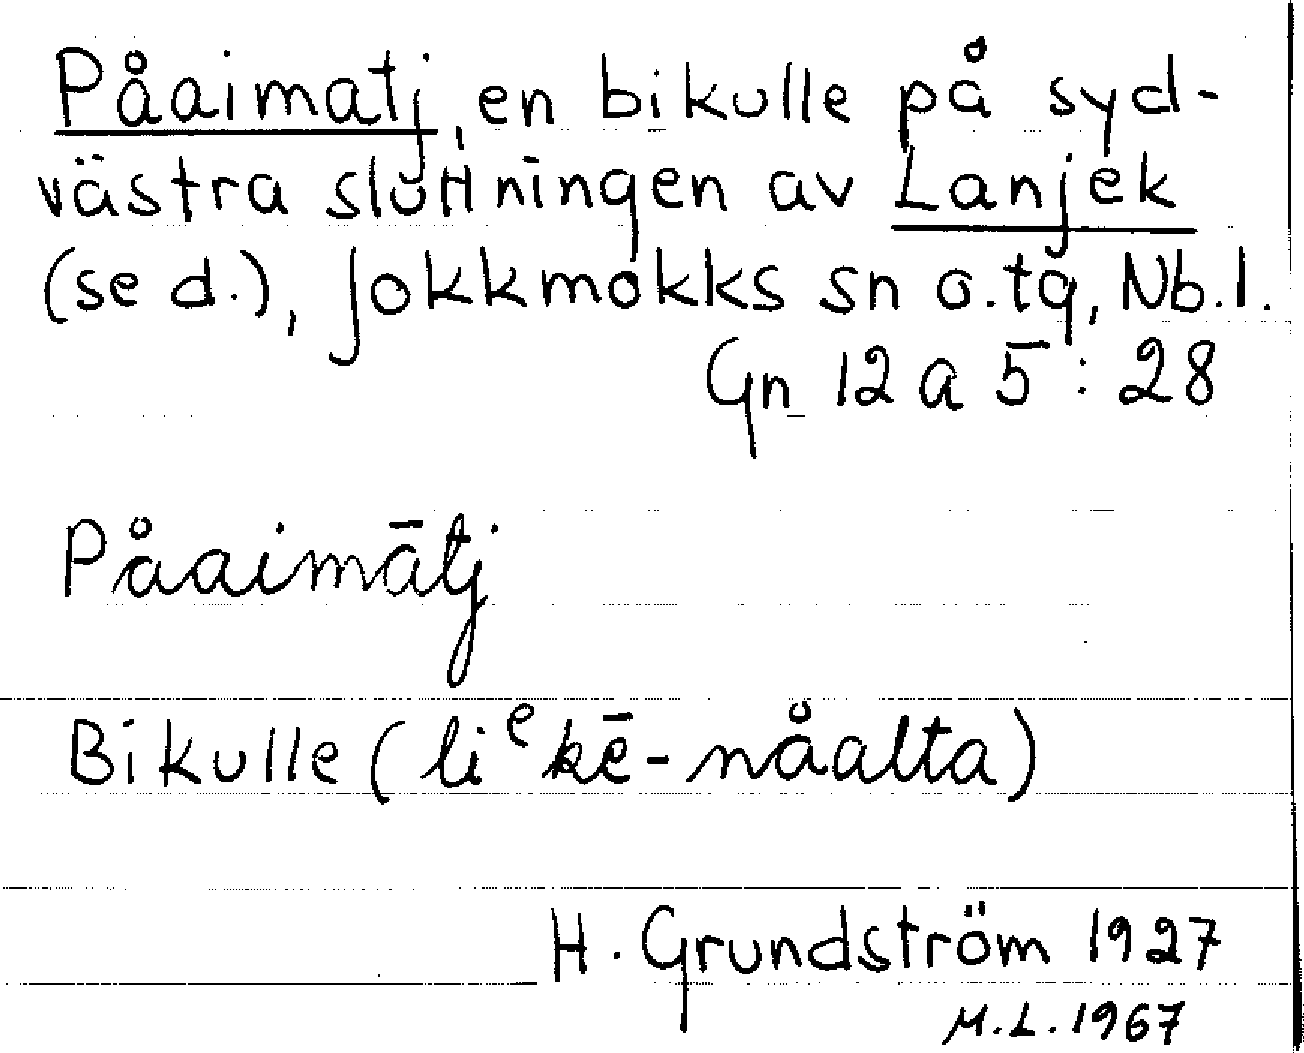 Påaimatj, en bikulle på syd-
västra sluttningen av Lanjek
(se d.), Jokkmokks sn o. tg, Nb. l.
Gn 12 a 5 : 28
Påaimātj
Bikulle (liᵉkē-nåalta)
H. Grundström 1927
M.L. 1967